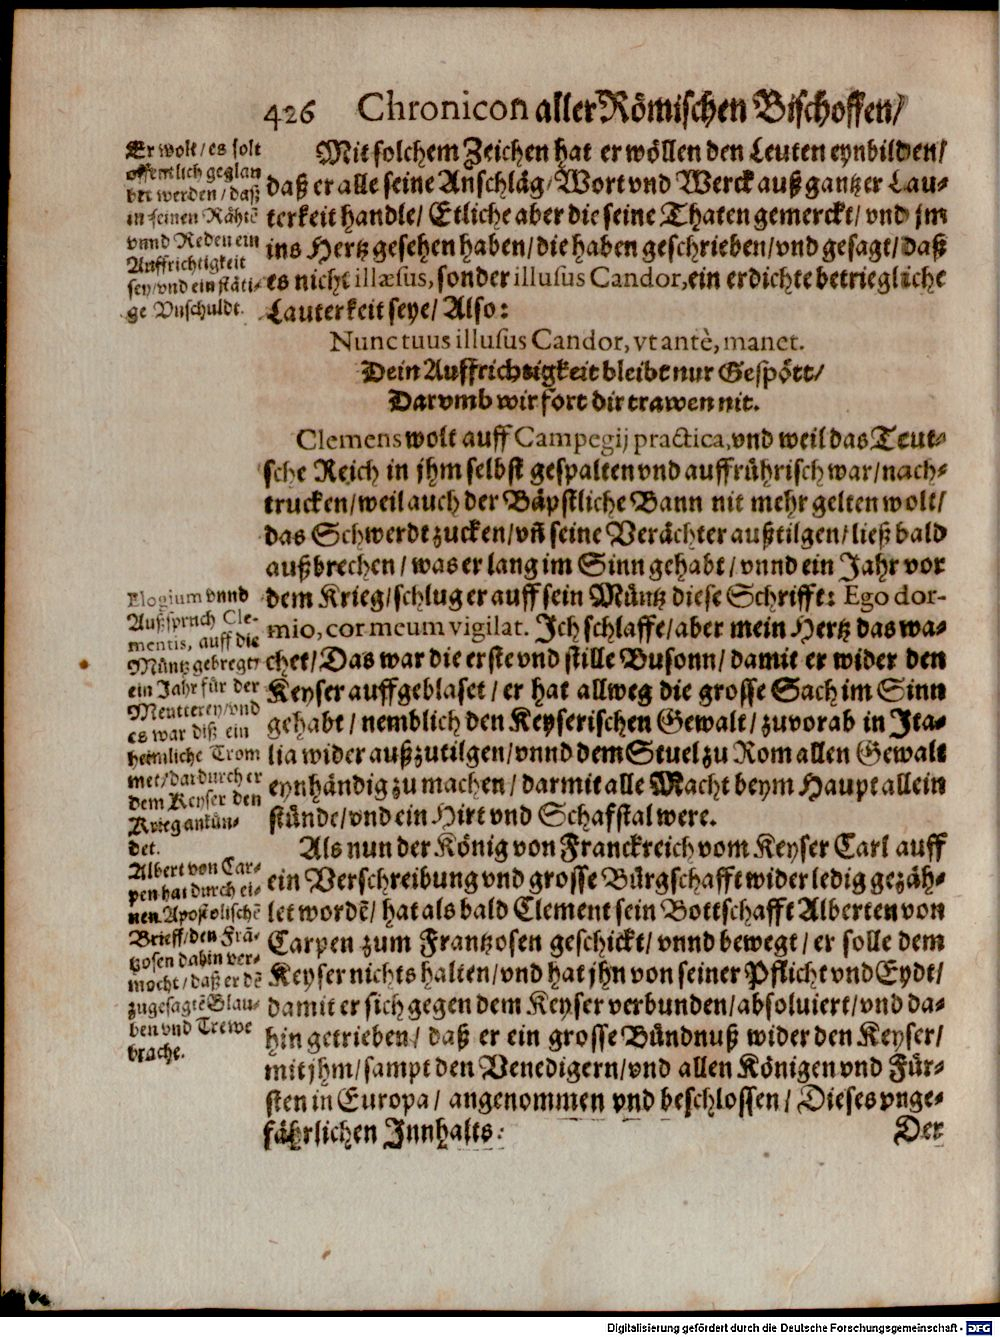 426 Chronicon aller Römischen Bischoffen/
Er wolt/ es solt
offentlich geglau
bet werden/ daß
in seinen Rähtē
vnnd Reden ein
Auffrichtigkeit
sey/ vnd ein stäti-
ge Vnschuldt.
Mit solchem Zeichen hat er wöllen den Leuten eynbilden/
daß er alle seine Anschläg/ Wort vnd Werck auß gantzer Lau-
terkeit handle/ Etliche aber die seine Thaten gemerckt/ vnd jm
ins Hertz gesehen haben/ die haben geschrieben/ vnd gesagt/ daß
es nicht illæsus, sonder illusus Candor, ein erdichte betriegliche
Lauterkeit seye/ Also:
Nunc tuus illusus Candor, vt antè, manet.
Dein Auffrichtigkeit bleibt nur Gespött/
Darvmb wir fort dir trawen nit.
Clemens wolt auff Campegij practica, vnd weil das Teut-
sche Reich in jhm selbst gespalten vnd auffrührisch war/ nach-
trucken/ weil auch der Bäpstliche Bann nit mehr gelten wolt/
das Schwerdt zucken/ vñ seine Verächter außtilgen/ ließ bald
außbrechen/ was er lang im Sinn gehabt/ vnnd ein Jahr vor
dem Krieg/ schlug er auff sein Müntz diese Schrifft: Ego dor-
mio, cor meum vigilat. Ich schlaffe/ aber mein Hertz das wa-
chet/ Das war die erste vnd stille Busonn/ damit er wider den
Keyser auffgeblaset/ er hat allweg die grosse Sach im Sinn
gehabt/ nemblich den Keyserischen Gewalt/ zuvorab in Ita-
lia wider außzutilgen/ vnnd dem Stuel zu Rom allen Gewalt
eynhändig zu machen/ darmit alle Macht beym Haupt allein
stünde/ vnd ein Hirt vnd Schafstal were.
Elogium vnnd
Außspruch Cle-
mentis, auff die
Müntz gebregt
ein Jahr für der
Meutterey/ vnd
es war diß ein
heimliche Trom
met/ dardurch er
dem Keyser den
Krieg ankün-
det.
Albert von Car-
pen hat durch ei-
nen Apostolischē
Brieff/ den Frā-
tzosen dahin ver-
mocht/ daß er dē
zugesagtē Glau-
ben vnd Trewe
brache.
Als nun der König von Franckreich vom Keyser Carl auff
ein Verschreibung vnd grosse Bürgschafft wider ledig gezäh-
let wordē/ hat als bald Clement sein Bottschafft Alberten von
Carpen zum Frantzosen geschickt/ vnnd bewegt/ er solle dem
Keyser nichts halten/ vnd hat jhn von seiner Pflicht vnd Eydt/
damit er sich gegen dem Keyser verbunden/ absoluiert/ vnd da-
hin getrieben/ daß er ein grosse Bündnuß wider den Keyser/
mit jhm/ sampt den Venedigern/ vnd allen Königen vnd Für-
sten in Europa/ angenommen vnd beschlossen/ Dieses vnge-
fährlichen Innhalts:
Der
Digitalisierung gefördert durch die Deutsche Forschungsgemeinschaft - DFG